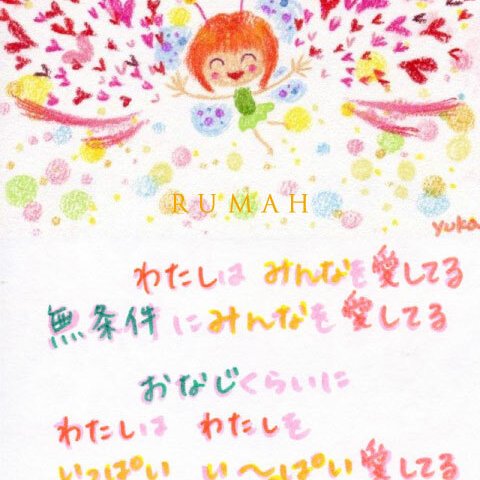 RUMAH
yuka
わたしは みんなを愛してる
無条件にみんなを愛してる
おなじくらいに
わたしは わたしを
いっぱい い〜っぱい愛してる